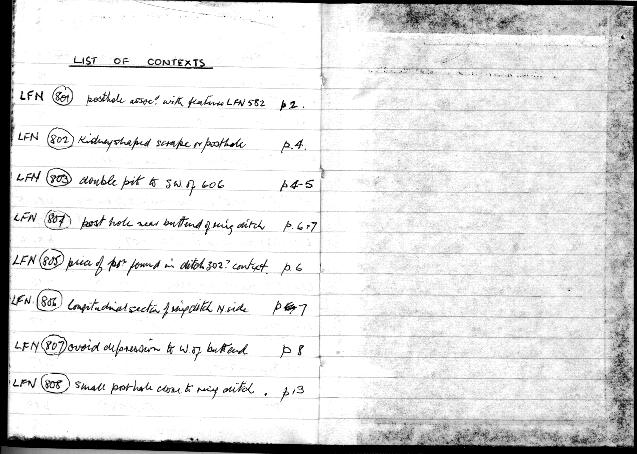 LIST OF CONTEXTS
LFN 801 posthole assoc. with features LFN 582 p 2.
LFN 802 Kidney shaped scrape or posthole p. 4.
LFN 803 double pit to SW of 606 p 4-5
LFN 804 post hole near buttend of ring ditch p. 6+7
LFN 805 piece of found in ditch 302? context. p. 6
LFN 806 Longitudinal section of ring ditch N side p 7
LFN 807 ovoid depression to W of buttend p 8
LFN 808 small posthole close to ring ditch. p 13